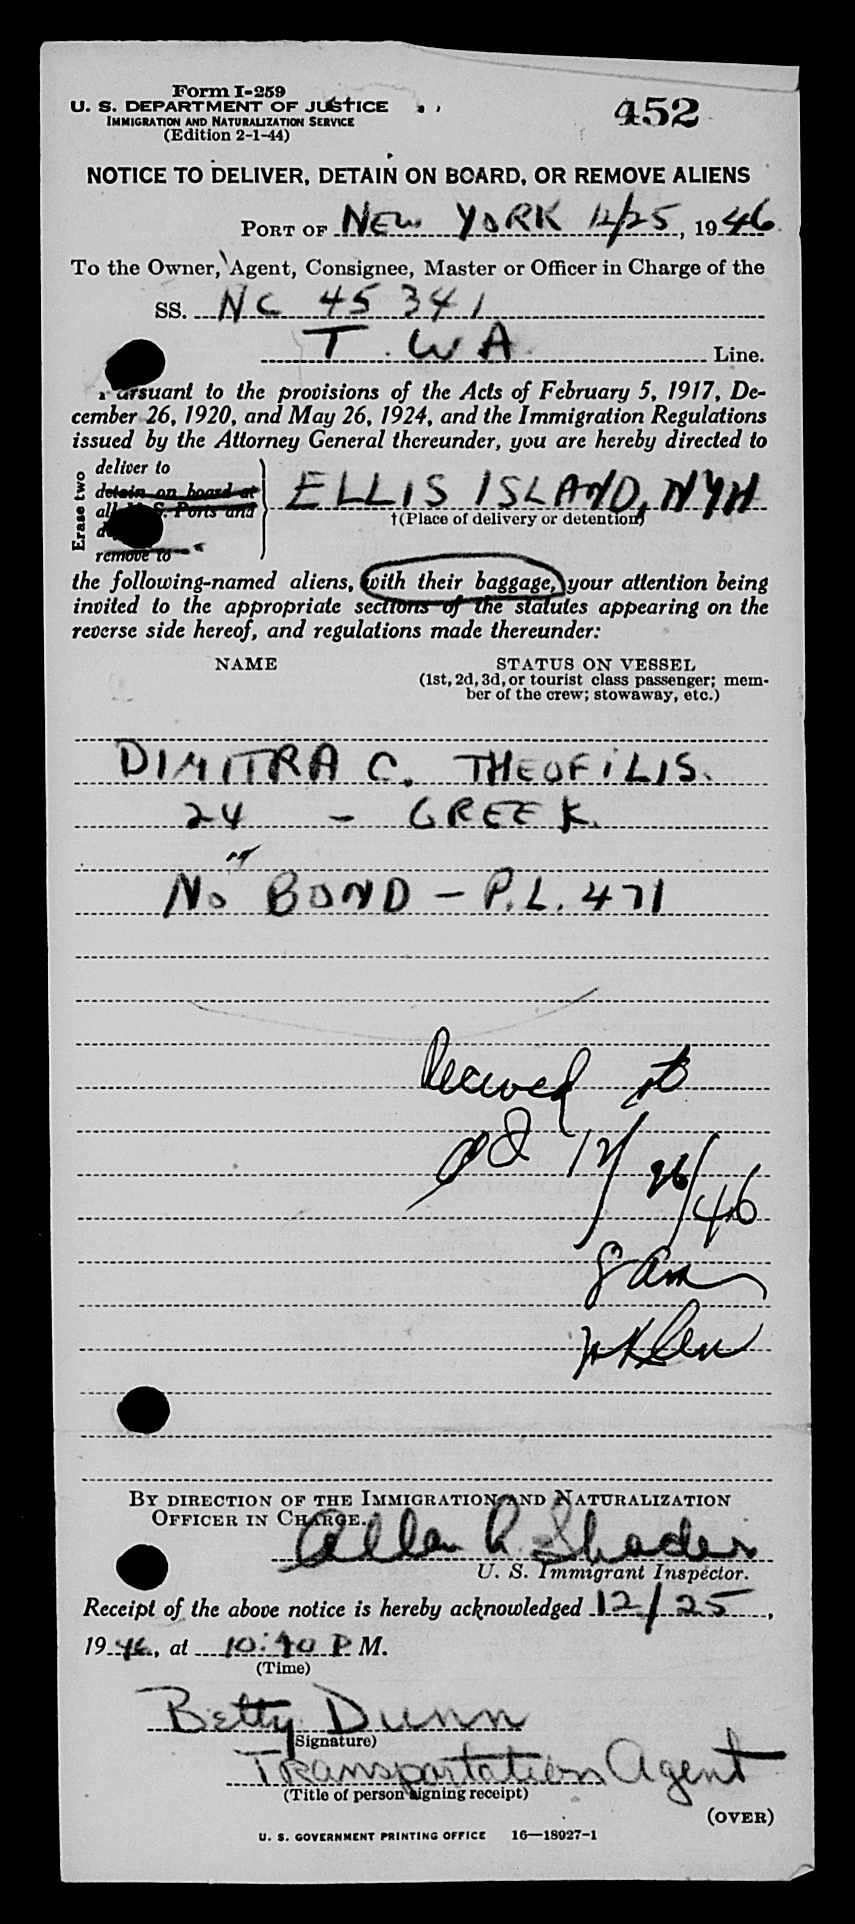 Form I-259
U. S. DEPARTMENT OF JUSTICE
452
IMMIGRATION AND NATURALIZATION SERVICE
(Edition 2-1-44)
NOTICE TO DELIVER, DETAIN ON BOARD, OR REMOVE ALIENS
PORT OF NEW YORK 12/25, 1946
To the Owner, Agent, Consignee, Master or Officer in Charge of the
SS. NC 45341
T.W.A. Line.
Pursuant to the provisions of the Acts of February 5, 1917, De-
cember 26, 1920, and May 26, 1924, and the Immigration Regulations
issued by the Attorney General thereunder, you are hereby directed to
Erase two
deliver to
detain on board at
all U. S. Ports and
remove to
ELLIS ISLAND, NYH
†(Place of delivery or detention)
the following-named aliens, with their baggage, your attention being
invited to the appropriate sections of the statutes appearing on the
reverse side hereof, and regulations made thereunder:
NAME STATUS ON VESSEL
(1st, 2d, 3d, or tourist class passenger; mem-
ber of the crew; stowaway, etc.)
DIMITRA C. THEOFILIS.
24 - GREEK.
NO BOND - P.L. 471
Received
12/26/46
8 am
BY DIRECTION OF THE IMMIGRATION AND NATURALIZATION
OFFICER IN CHARGE.
Allan R. Shader
U. S. Immigrant Inspector.
Receipt of the above notice is hereby acknowledged 12/25,
1946, at 10:40 P M.
(Time)
Betty Dunn
(Signature)
Transportation Agent
(Title of person signing receipt)
(OVER)
U. S. GOVERNMENT PRINTING OFFICE 16—18027-1